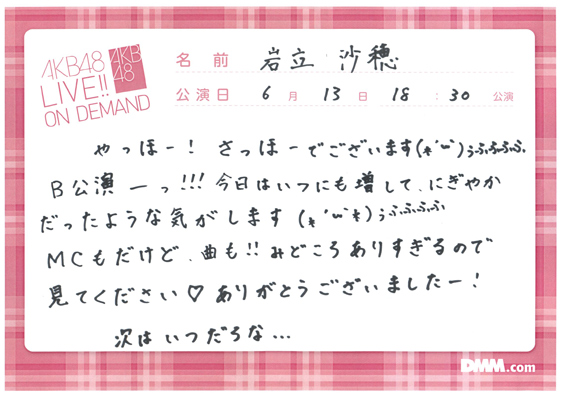 AKB48
LIVE!!
ON DEMAND
AKB
48
名前 岩立 沙穂
公演日 6月 13日 18:30 公演
やっほー! さっほーでございます(*'ー')ぅふふふふふ
B公演ーっ!!! 今日はいつにも増して、にぎやか
だったような気がします(*'ー'*)ぅふふふふふ
MCもだけど、曲も!! みどころありすぎるので
見てください♡ ありがとうございましたー!
次はいつだろな...
DMM.com